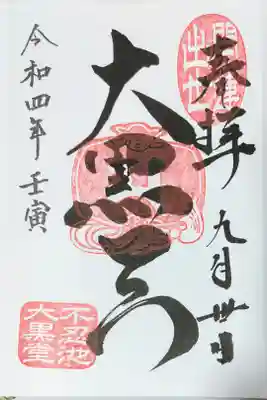 開運
出世
奉拝
九月卅日
大黒天
令和四年 壬寅
不忍池
大黒堂